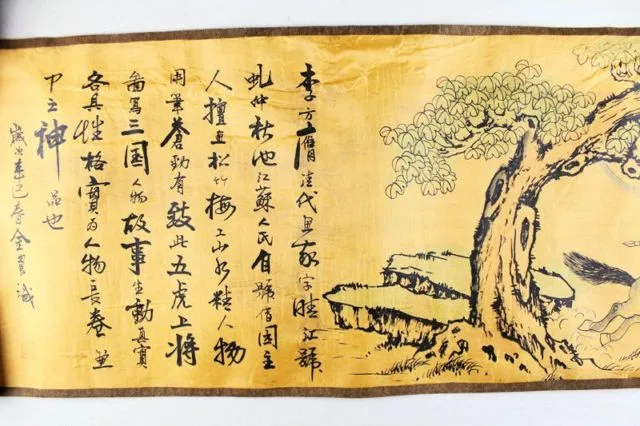 李方膺清代画家字晴江號
虬仲秋池江蘇人民自號借園主
人擅画松竹梅工山水粧人物
用筆蒼勁有致此五虎上將
畵寫三国人物故事生動真實
各具性格實为人物長卷画
中之神品也
歲次辛巳春金農識